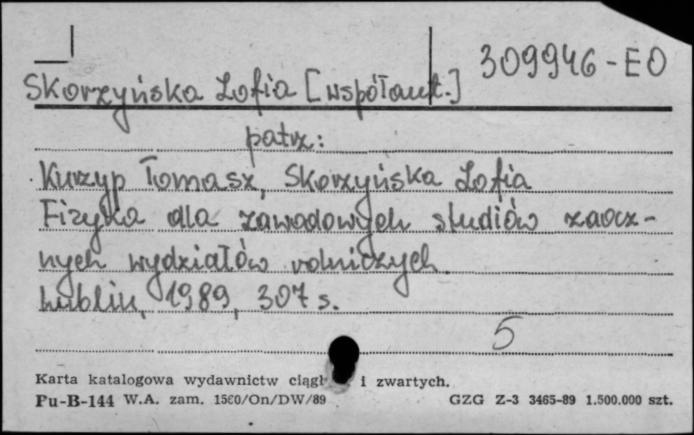 309946-EO
Skorzyńska Zofia [współaut.]
patrz:
Kurzyp Tomasz, Skorzyńska Zofia
Fizyka dla zawodowych studiów zaocz-
nych wydziałów rolniczych.
Lublin, 1989, 307 s.
5
Karta katalogowa wydawnictw ciągł i zwartych.
Pu-B-144 W.A. zam. 1560/On/DW/89 GZG Z-3 3465-89 1.500.000 szt.